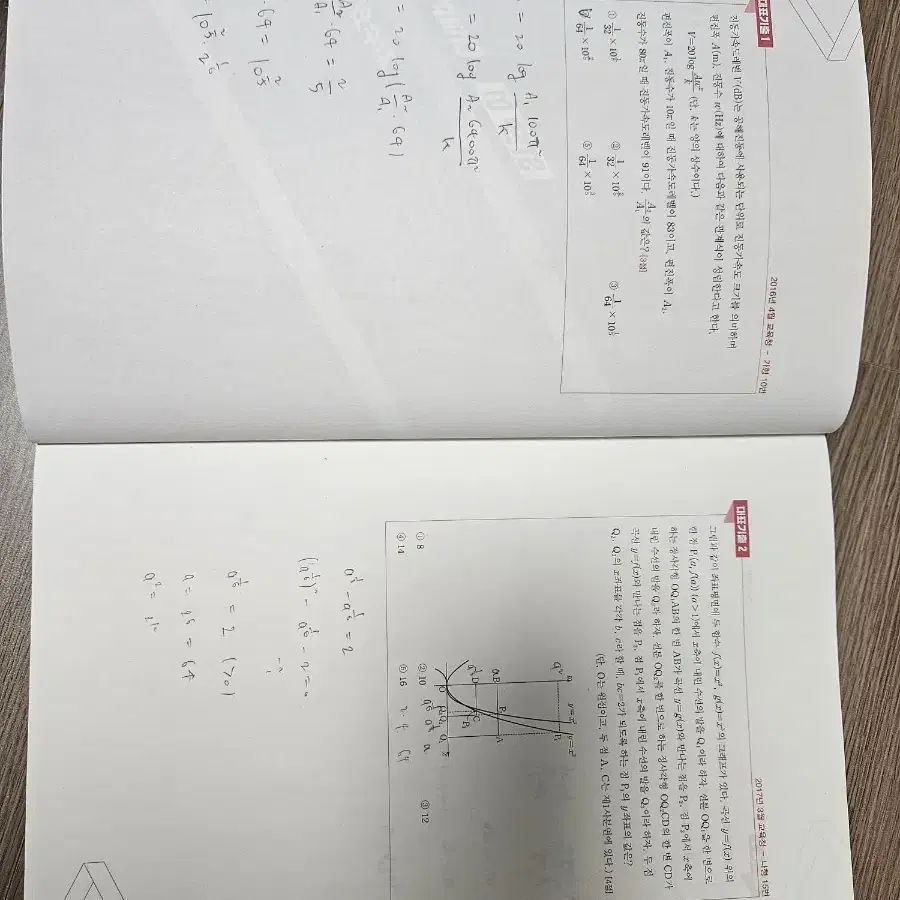 대표기출 1
2016년 4월 교육청 - 가형 10번
진동가속도레벨 V(dB)는 공해진동에 사용되는 단위로 진동가속도 크기를 의미하며
편진폭 A(m), 진동수 w(Hz)에 대하여 다음과 같은 관계식이 성립한다고 한다.
V=20 log Aw²/k (단, k는 양의 상수이다.)
편진폭이 A₁, 진동수가 10π일 때 진동가속도레벨이 83이고, 편진폭이 A₂,
진동수가 80π일 때 진동가속도레벨이 91이다. A₂/A₁의 값은? [3점]
① 1/32 × 10
② 1/32 × 10
③ 1/64 × 10
1/64 × 10
⑤ 1/64 × 10
= 20 log A₁ 100π²/k
= 20 log A₂ 6400π²/k
= 20 log (A₂/A₁ · 64)
A₂/A₁ · 64 = 2/5
64 = 10
대표기출 2
2017년 3월 교육청 - 나형 15번
그림과 같이 좌표평면에 두 함수 f(x)=x², g(x)=x³의 그래프가 있다. 곡선 y=f(x) 위의
한 점 P₁(a, f(a)) (a>1)에서 x축에 내린 수선의 발을 Q₁이라 하자. 선분 OQ₁을 한 변으로
하는 정사각형 OQ₁AB의 한 변 AB가 곡선 y=g(x)와 만나는 점을 P₂, 점 P₂에서 x축에
내린 수선의 발을 Q₂라 하자. 선분 OQ₂를 한 변으로 하는 정사각형 OQ₂CD의 한 변 CD가
곡선 y=f(x)와 만나는 점을 P₃, 점 P₃에서 x축에 내린 수선의 발을 Q₃이라 하자. 두 점
Q₂, Q₃의 x좌표를 각각 b, c라 할 때, bc=2가 되도록 하는 점 P₁의 y좌표의 값은?
(단, O는 원점이고, 두 점 A, C는 제1사분면에 있다.) [4점]
① 8
② 10
③ 12
④ 14
⑤ 16
= 2 (>0)
= 64